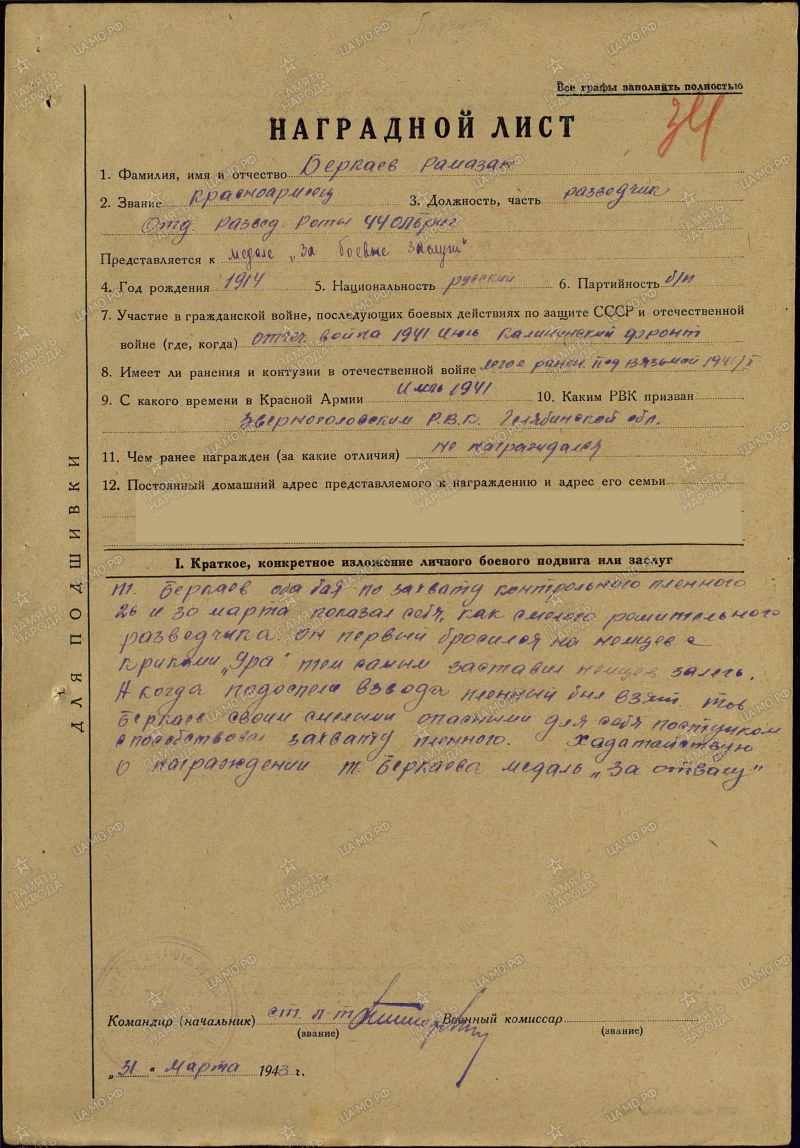 Все графы заполнять полностью
34
НАГРАДНОЙ ЛИСТ
1. Фамилия, имя и отчество Беркаев Рамазан
2. Звание Красноармеец 3. Должность, часть разведчик
Отд. Развед. Роты 44 ОЛБриг
Представляется к медале „За боевые заслуги"
4. Год рождения 1914 5. Национальность русский 6. Партийность б/п
7. Участие в гражданской войне, последующих боевых действиях по защите СССР и отечественной
войне (где, когда) отеч. война 1941 Июль Калининский фронт
8. Имеет ли ранения и контузии в отечественной войне легое ранен. под Вязьмой
9. С какого времени в Красной Армии Июль 1941 10. Каким РВК призван
Зверноголовским Р.В.К. Челябинской обл.
11. Чем ранее награжден (за какие отличия) не награждался
12. Постоянный домашний адрес представляемого к награждению и адрес его семьи
I. Краткое, конкретное изложение личного боевого подвига или заслуг
т. Беркаев оба боя по захвату контрольного пленного
26 и 30 марта показал себя, как смелого решительного
разведчика. он первый бросился на немцев с
криками „Ура" тем самым заставил немцев залечь.
А когда подоспела взвода пленный был взят. тов
Беркаев своим смелыми опасными для себя поступком
способствовал захвату пленного. Хадатайствую
о награждении т. Беркаева медаль „За отвагу"
Командир (начальник) ст. л-т Военный комиссар
(звание) (звание)
„31" марта 1943 г.
ДЛЯ ПОДШИВКИ
ПАМЯТЬ НАРОДА
ЦАМО.РФ